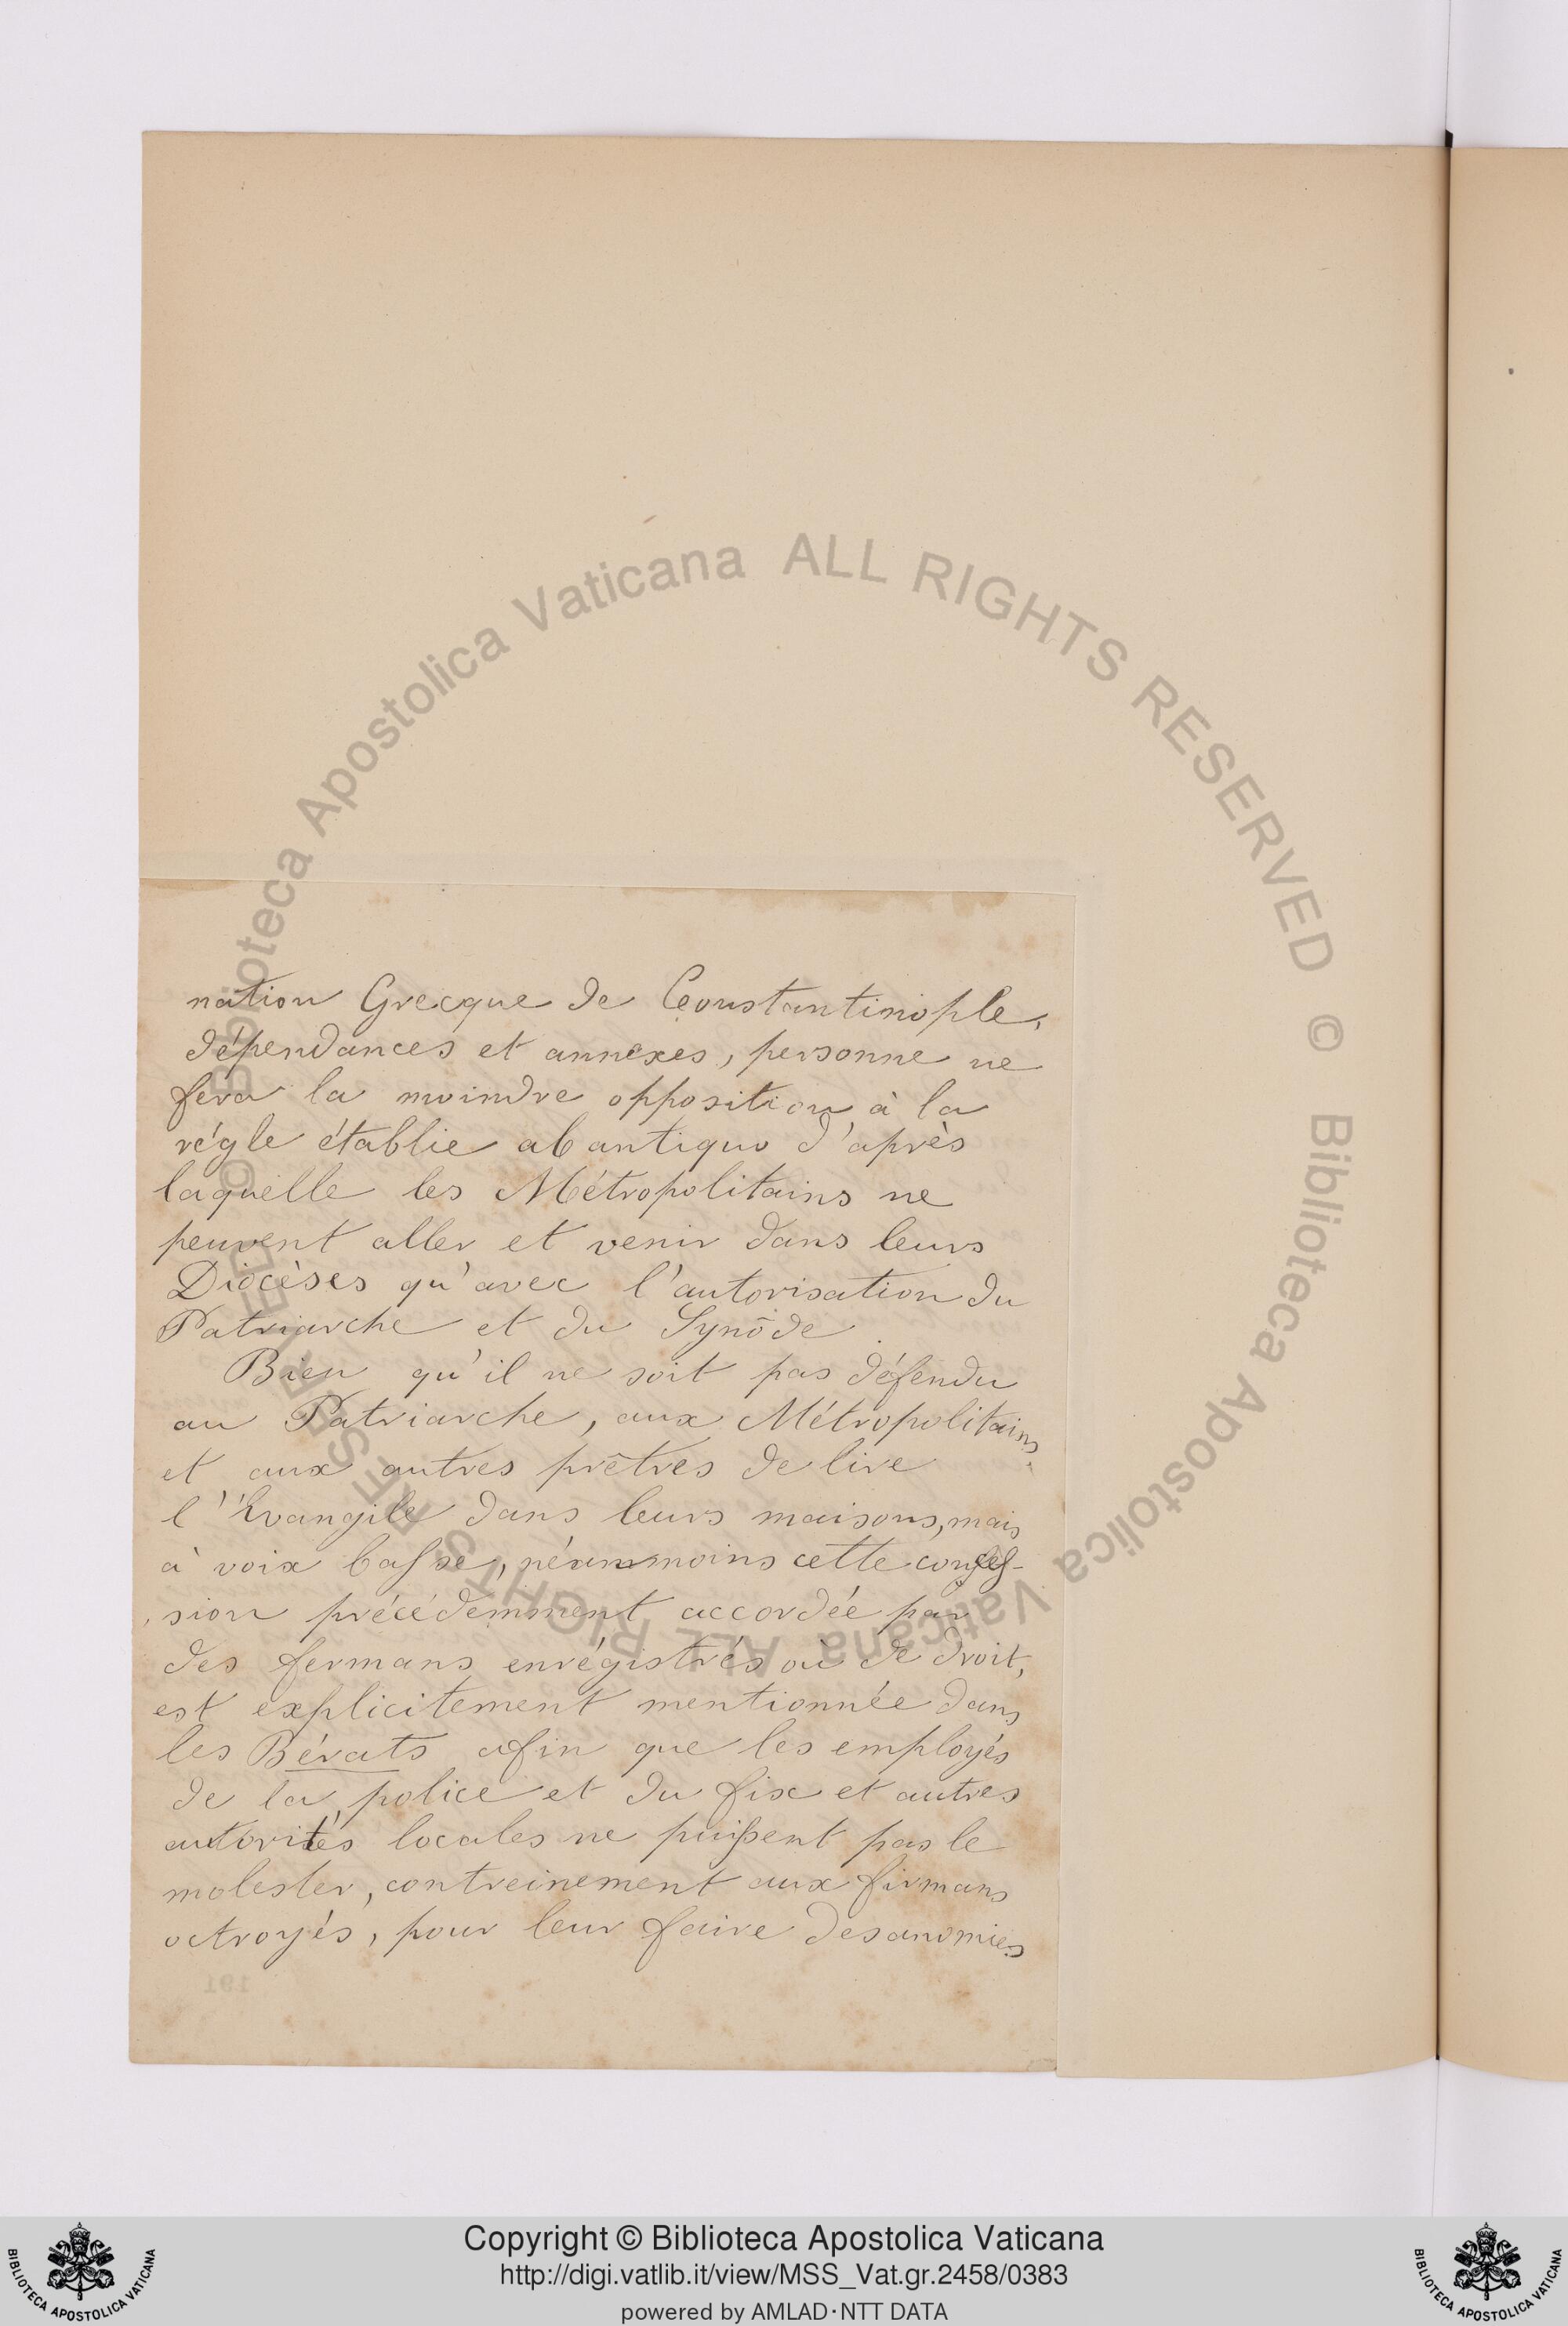 nation Grecque de Constantinople,
dépendances et annexes, personne ne
fera la moindre opposition à la
régle établie ab antiquo d'après
laquelle les Métropolitains ne
peuvent aller et venir dans leurs
Diocèses qu'avec l'autorisation du
Patriarche et du Synôde.
Bien qu'il ne soit pas défendu
au Patriarche, aux Métropolitains
et aux autres prêtres de lire
l'Evangile dans leurs maisons, mais
à voix basse, néanmoins cette
sion précédemment accordée par
des fermans enrégistrés où de droit,
est explicitement mentionnée dans
les Bérats afin que les employés
de la police et du fix et autres
autorités locales ne puissent pas le
molester, aux firmans
octroyés, pour leur faire des
191
© Biblioteca Apostolica Vaticana ALL RIGHTS RESERVED © Biblioteca Apostolica Vaticana ALL RIGHTS RESERVED
BIBLIOTECA APOSTOLICA VATICANA
Copyright © Biblioteca Apostolica Vaticana
http://digi.vatlib.it/view/MSS_Vat.gr.2458/0383
powered by AMLAD·NTT DATA
BIBLIOTECA APOSTOLICA VATICANA